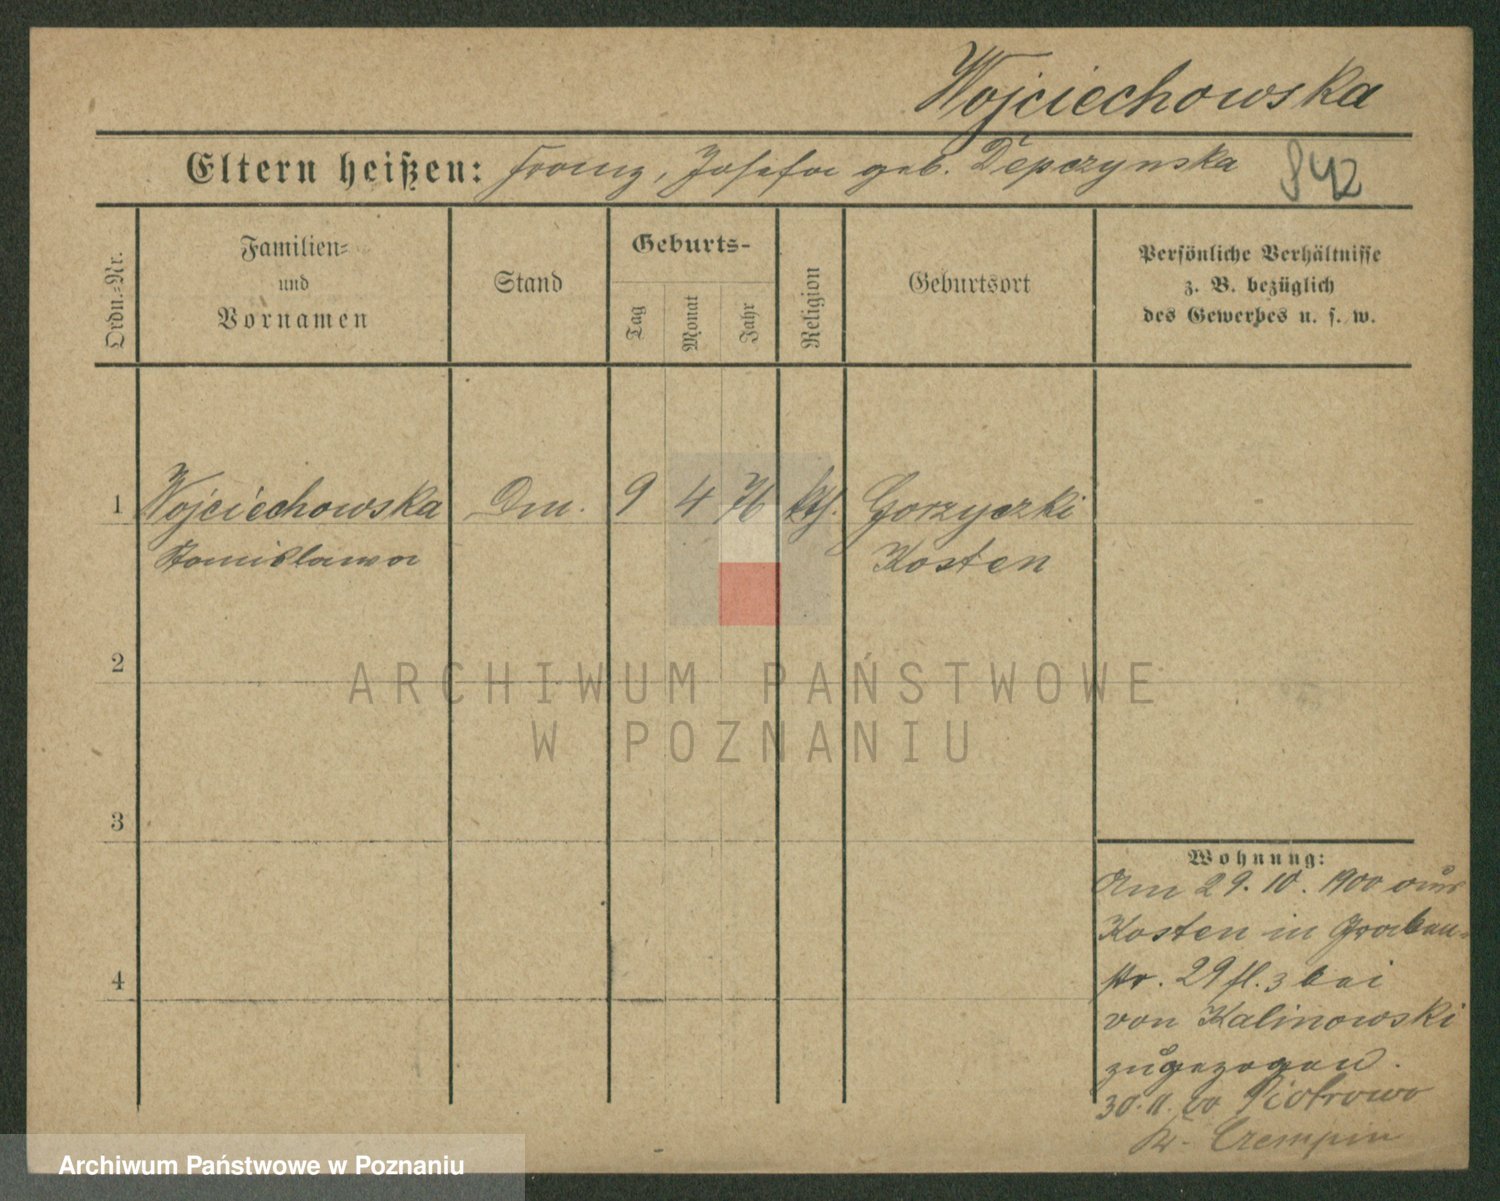 Wojciechowska
Eltern heißen: Franz, Josefa geb. Depczynska
842
Ordn.-Nr.
Familien-
und
Vornamen
Stand
Geburts-
Tag
Monat
Jahr
Religion
Geburtsort
Persönliche Verhältnisse
z. B. bezüglich
des Gewerbes u. s. w.
1 Wojciechowska Dm. 9 4 76 kth. Gorzyczki
Stanislawa Kosten
ARCHIWUM PAŃSTWOWE
W POZNANIU
2
3
4
Wohnung:
Am 29. 10. 1900 aus
Kosten in Graben-
str. 29 fl. 3 bei
von Kalinowski
zugezogen.
30. 11. 00 Piotrowo
Kr. Czempin
Archiwum Państwowe w Poznaniu